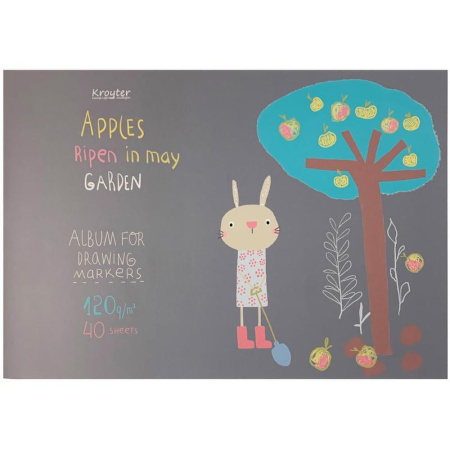 Kroyter
APPLES
Ripen in may
GARDEN
ALBUM FOR
DRAWING
MARKERS
120g/m²
40 SHEETS